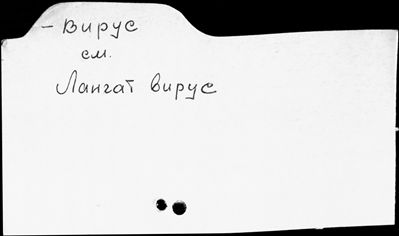 - Вирус
см.
Лангат вирус